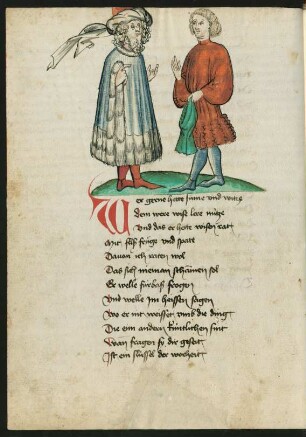 Wer gerne hette sinne und witze
Dem were wise lere nütze
Und das er hette wisen ratt
Mit flisz frůge und spate
Davon ich raten wol
Das sich nieman schämen sol
Er welle fürbasz frogen
Und welle im heissen sagen
Wo er nit weisset umb die ding
Die ein andern kuntlichen sint
Wan fragen sy dir geseit
Ist ein slüssel der worheit